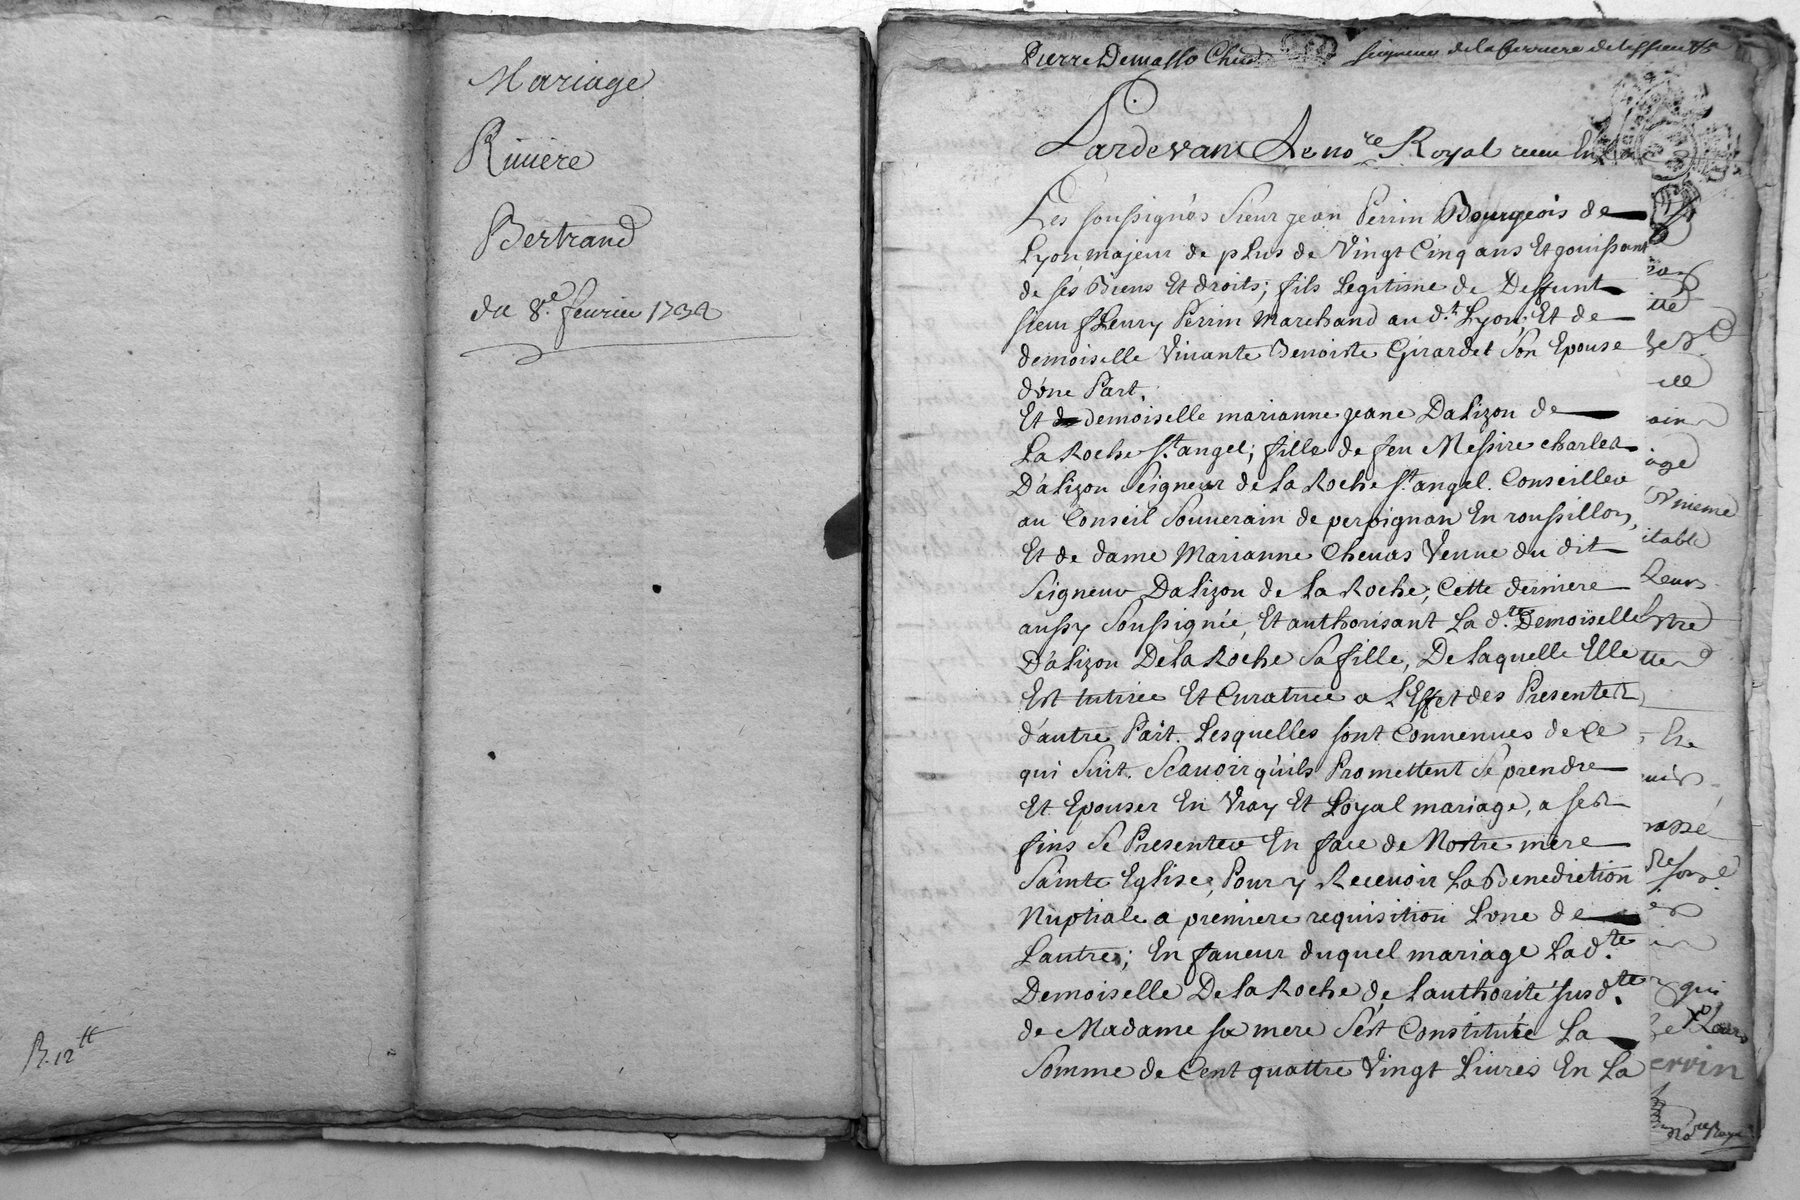 Mariage
Riviere
Bertrand
du 8e. fevrier 1732
R. 12 tt
Pierre Demasso Cheu seigneur de la ferriere
Pardevant Le nore Royal receu En
Les soussignés Sieur jean Perrin Bourgeois de
Lyon majeur de plus de Vingt Cinq ans Et jouissant
de ses Biens Et droits; fils Legitime de Deffunt
sieur fleury Perrin Marchand au d.t Lyon; Et de
demoiselle Vivante Benoiste Girardet Son Epouse
d'une Part.
Et demoiselle marianne jeane Dalizon de
La Roche St. angel; fille de feu Messire charles
D'alizon Seigneur de la Roche St. angel. Conseiller
au Conseil Souverain de perpignan En roussillon,
Et de dame Marianne Chevas Veuve du dit
Seigneur Dalizon de la Roche; Cette derniere
aussy Soussignée, Et authorisant La d.te Demoiselle
D'alizon De la Roche Sa fille, De laquelle Elle
Est tutrice Et Curatrice a L'Effet des Presentes
d'autre Part. Lesquelles sont Convenues de Ce
qui Suit. Scavoir qu'ils Promettent Se prendre
Et Epouser En Vray Et Loyal mariage, a ses
fins Se Presenter En face de Nostre mere
Sainte Eglise, Pour y Recevoir La Benediction
Nuptiale a premiere requisition L'une de
Lautre; En faveur duquel mariage La d.te
Demoiselle De la Roche de Lauthorité susd.te
de Madame sa mere S'est Constituée La
Somme de Cent quattre Vingt Livres En La
itable
Leurs
qui
errin